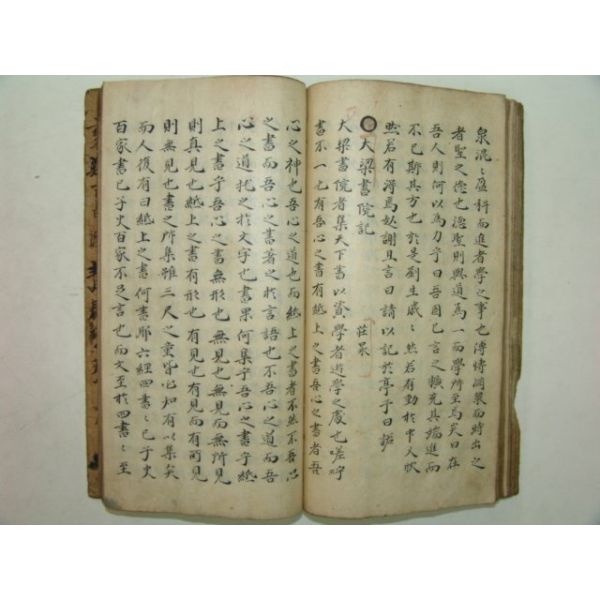 泉流〻盈科而進者學之事也溥愽淵泉而時出之
者聖之德也德聖則與道爲一而學所至焉矣曰在
吾人則何以爲力乎曰吾固已言之擴充其端進而
不已斯其方也於是劉生戚〻然若有動於中又怳
然若有得焉起謝且言曰請以記於亭乎曰諾
大梁書院記 莊杲
大梁書院者集天下書以資學者遊學之處也嗟呼
書不一也有吾心之書有紙上之書吾心之書者吾
心之神也吾心之道也而紙上之書者不然不吾心
之書而吾心之書著之於言語也不吾心之道而吾
心之道托之於文字也書果何集乎吾心之書乎紙
上之書乎吾心之書無形也無見也無見而無所見
則真見也紙上之書有形也有見也有見而有可見
則無見也書之所集雖三尺之童皆知有以集矣
而人復有曰紙上之書何書耶六經四書〻〻已乎史
百家書已乎史百家不足言也而文至於四書〻〻至